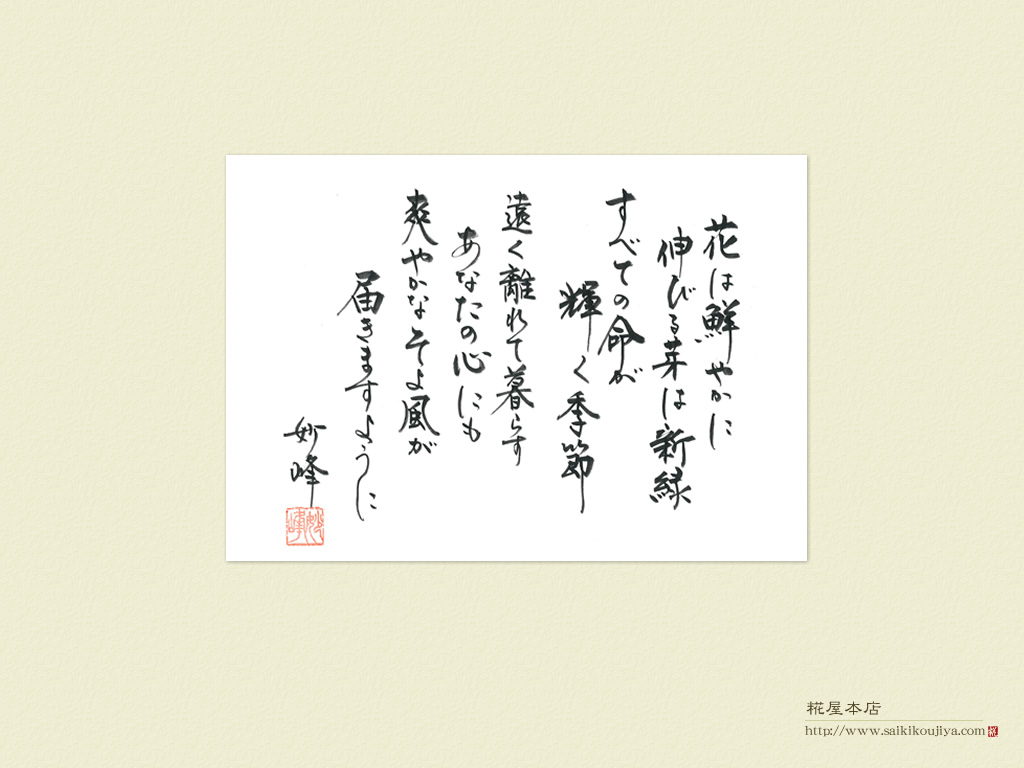 花は鮮やかに
伸びる芽は新緑
すべての命が
輝く季節
遠く離れて暮らす
あなたの心にも
爽やかなそよ風が
届きますように
妙峰
妙峰
糀屋本店
http://www.saikikoujiya.com
糀